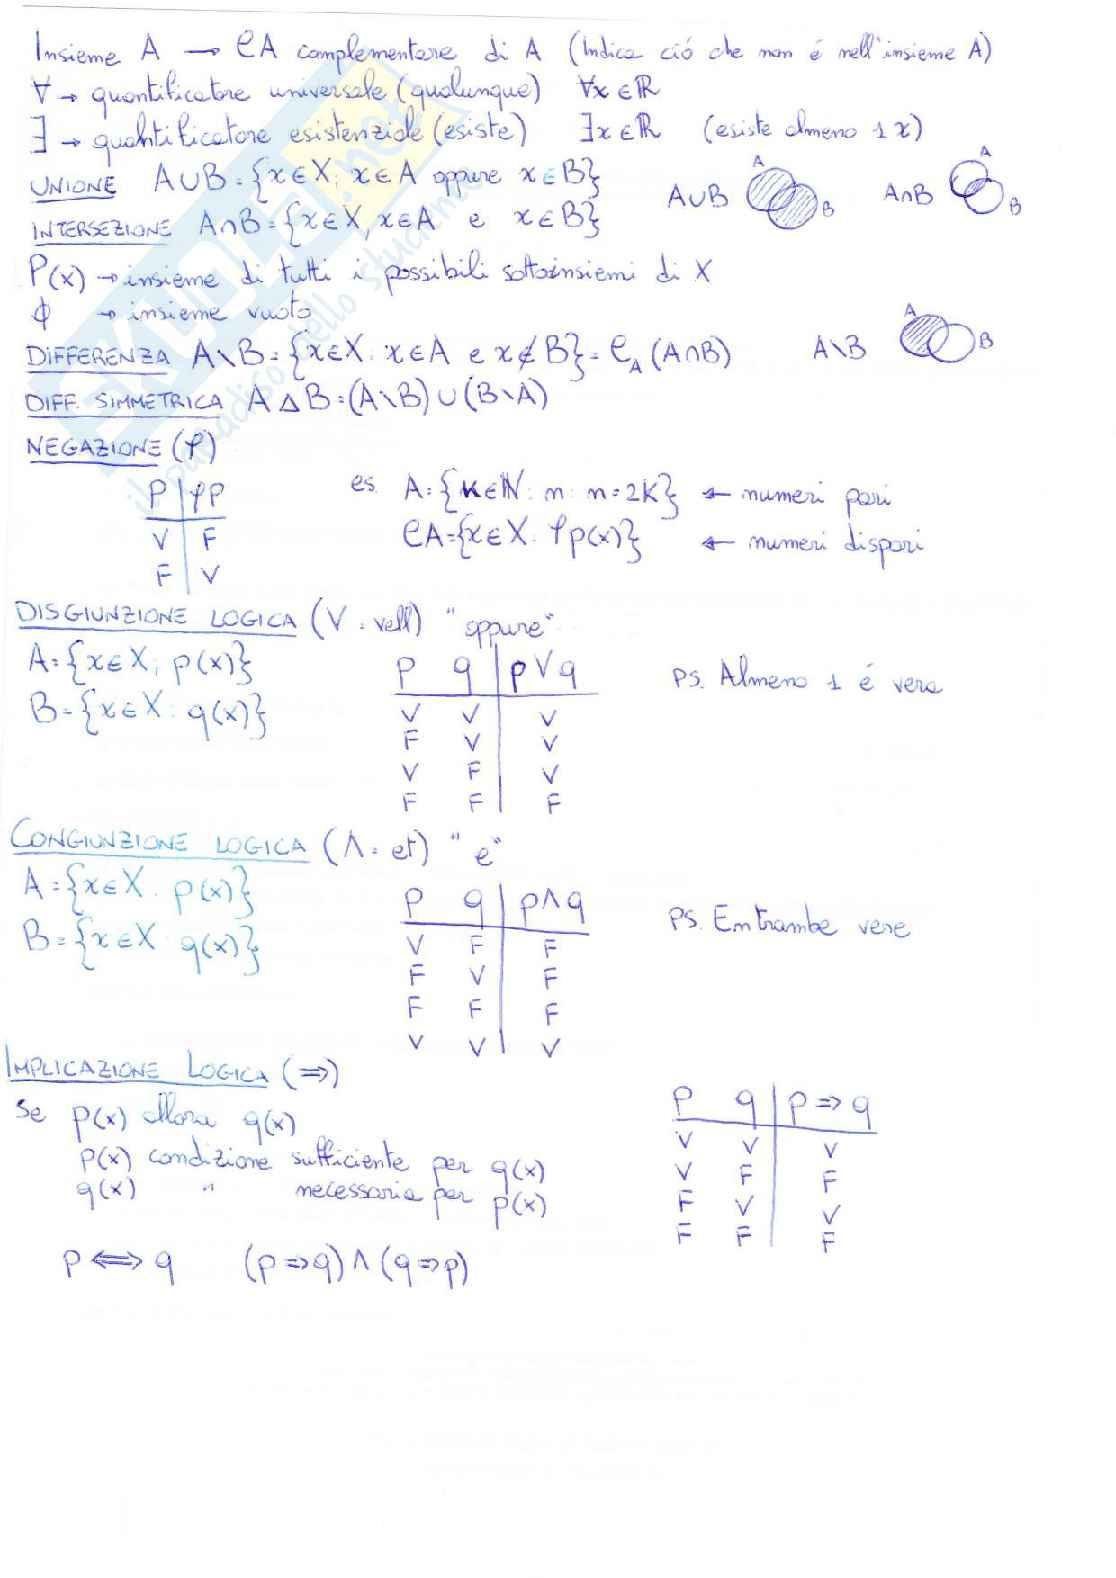 Insieme A → CA complementare di A (Indica ció che non é nell'insieme A)
∀ → quantificatore universale (qualunque) ∀x ∈ ℝ
∃ → quantificatore esistenziale (esiste) ∃x ∈ ℝ (esiste almeno 1 x)
UNIONE A∪B = {x∈X: x∈A oppure x∈B} A∪B A B A∩B A B
INTERSEZIONE A∩B = {x∈X, x∈A e x∈B}
P(x) → insieme di tutti i possibili sottoinsiemi di X
ϕ → insieme vuoto
DIFFERENZA A\B = {x∈X: x∈A e x∉B} = C_A (A∩B) A\B A B
DIFF. SIMMETRICA A△B = (A\B) ∪ (B\A)
NEGAZIONE (φ)
P | φP
V | F
F | V
es. A = {K∈ℕ: n: n=2K} ← numeri pari
CA = {x∈X: φp(x)} ← numeri dispari
DISGIUNZIONE LOGICA (V = vell) "oppure"
A = {x∈X; p(x)}
B = {x∈X: q(x)}
P q | p∨q
V V | V
F V | V
V F | V
F F | F
PS. Almeno 1 é vera
CONGIUNZIONE LOGICA (Λ = et) "e"
A = {x∈X: p(x)}
B = {x∈X: q(x)}
P q | p∧q
V F | F
F V | F
F F | F
V V | V
PS. Entrambe vere
IMPLICAZIONE LOGICA (⇒)
Se p(x) allora q(x)
p(x) condizione sufficiente per q(x)
q(x) " necessaria per p(x)
P q | p⇒q
V V | V
V F | F
F V | V
F F | F
p ⟺ q (p⇒q) ∧ (q⇒p)
SKUOLA.net
il paradiso dello studente